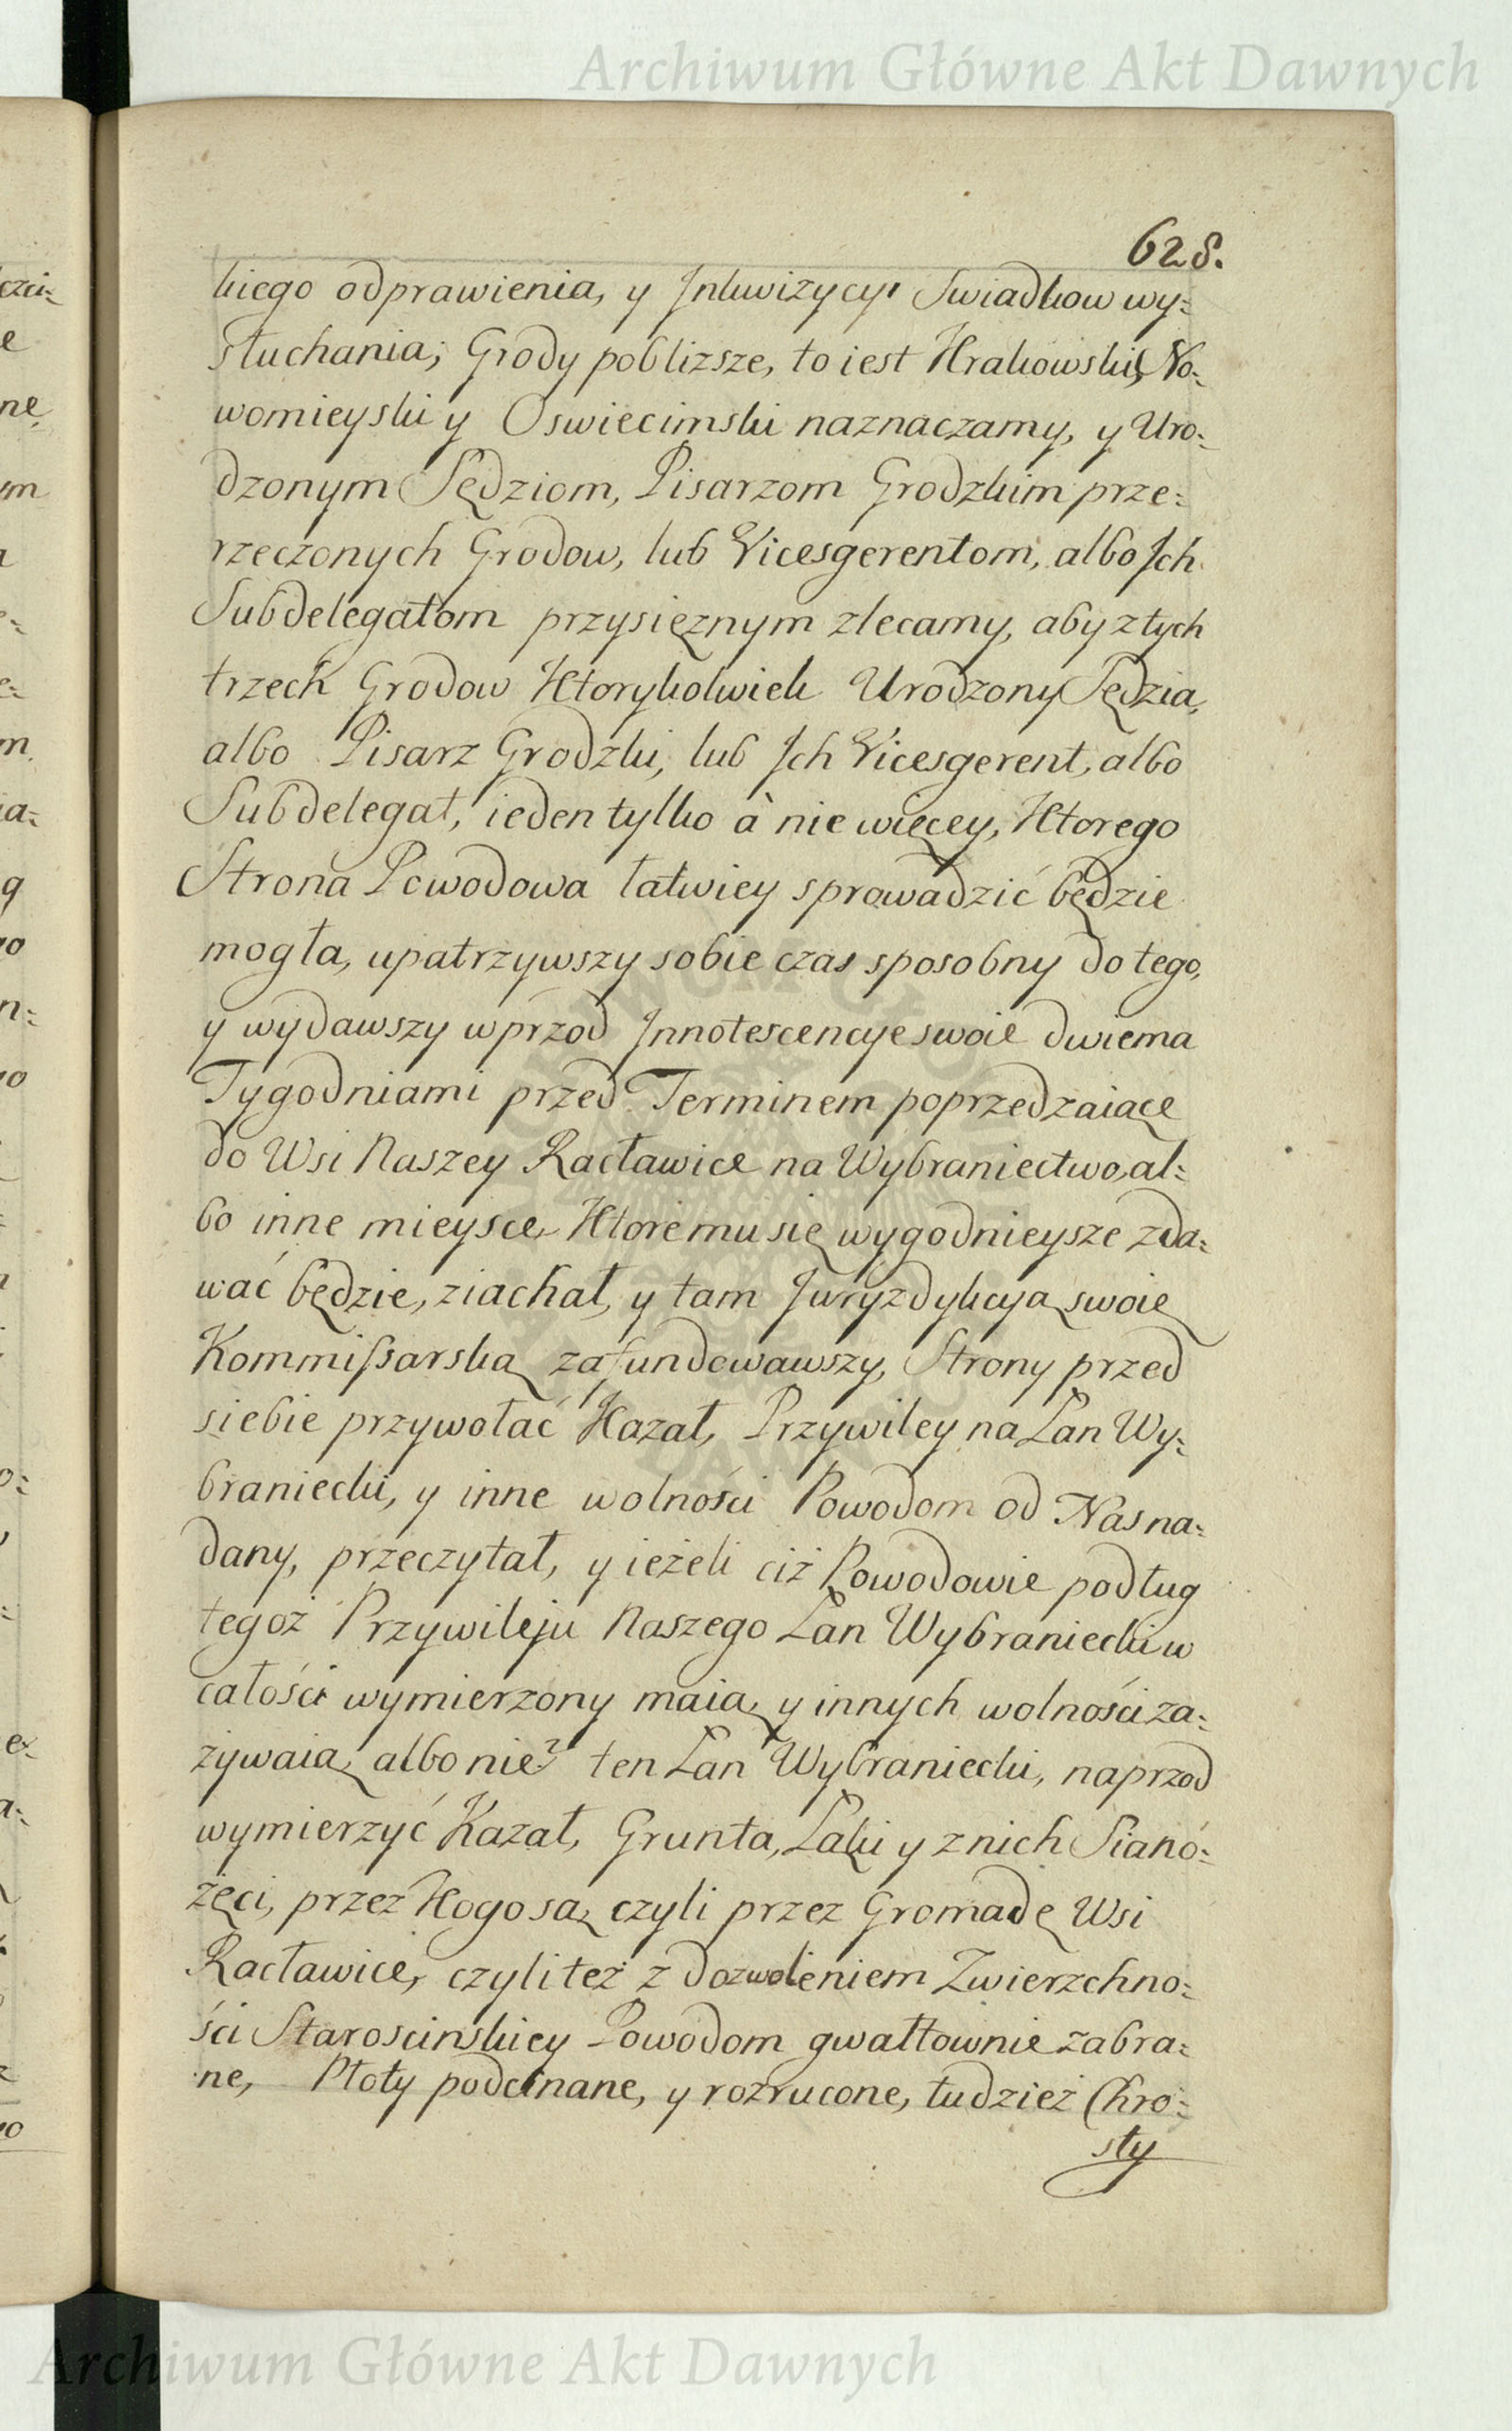 Archiwum Główne Akt Dawnych
628.
kiego odprawienia, y Jnkwizycyi Swiadkow wy=
słuchania; Grody poblizsze, to iest Krakowski, No=
womieyski y Oswiecimski naznaczamy, y Uro=
dzonym Sędziom, Pisarzom Grodzkim prze=
rzeczonych Grodow, lub Vicesgerentom, albo Jch
Subdelegatom przysięznym zlecamy, aby z tych
trzech Grodow Ktorykolwiek Urodzony Sędzia,
albo Pisarz Grodzki, lub Jch Vicesgerent, albo
Subdelegat, ieden tylko à nie więcey, Ktorego
Strona Powodowa łatwiey sprowadzić będzie
mogła, upatrzywszy sobie czas sposobny do tego,
y wydawszy wprzod Jnnotescencye swoie dwiema
Tygodniami przed Terminem poprzedzaiącę
do Wsi Naszey Racławice na Wybraniectwo, al=
bo inne mieysce, Ktore mu się wygodnieysze zda=
wać będzie, ziachał, y tam Juryzdykcyą swoię
Kommissarską zafundowawszy, Strony przed
siebie przywołać Kazał, Przywiley na Łan Wy=
braniecki, y inne wolności Powodom od Nas na=
dany, przeczytał, y ieżeli ciż Powodowie podług
tegoż Przywileju Naszego Łan Wybraniecki w
całości wymierzony maią, y innych wolności za=
zywaią, albo nie? ten Łan Wybraniecki, naprzod
wymierzyć Kazał, Grunta, Łąki y z nich Sianó=
żęci, przez Kogo są, czyli przez Gromadę Wsi
Racławice, czyli też z dozwoleniem Zwierzchno=
ści Staroscińskiey Powodom gwałtownie zabra=
ne, Płoty podcinane, y rozrucone, tudzież Chro=
sty
Archiwum Główne Akt Dawnych